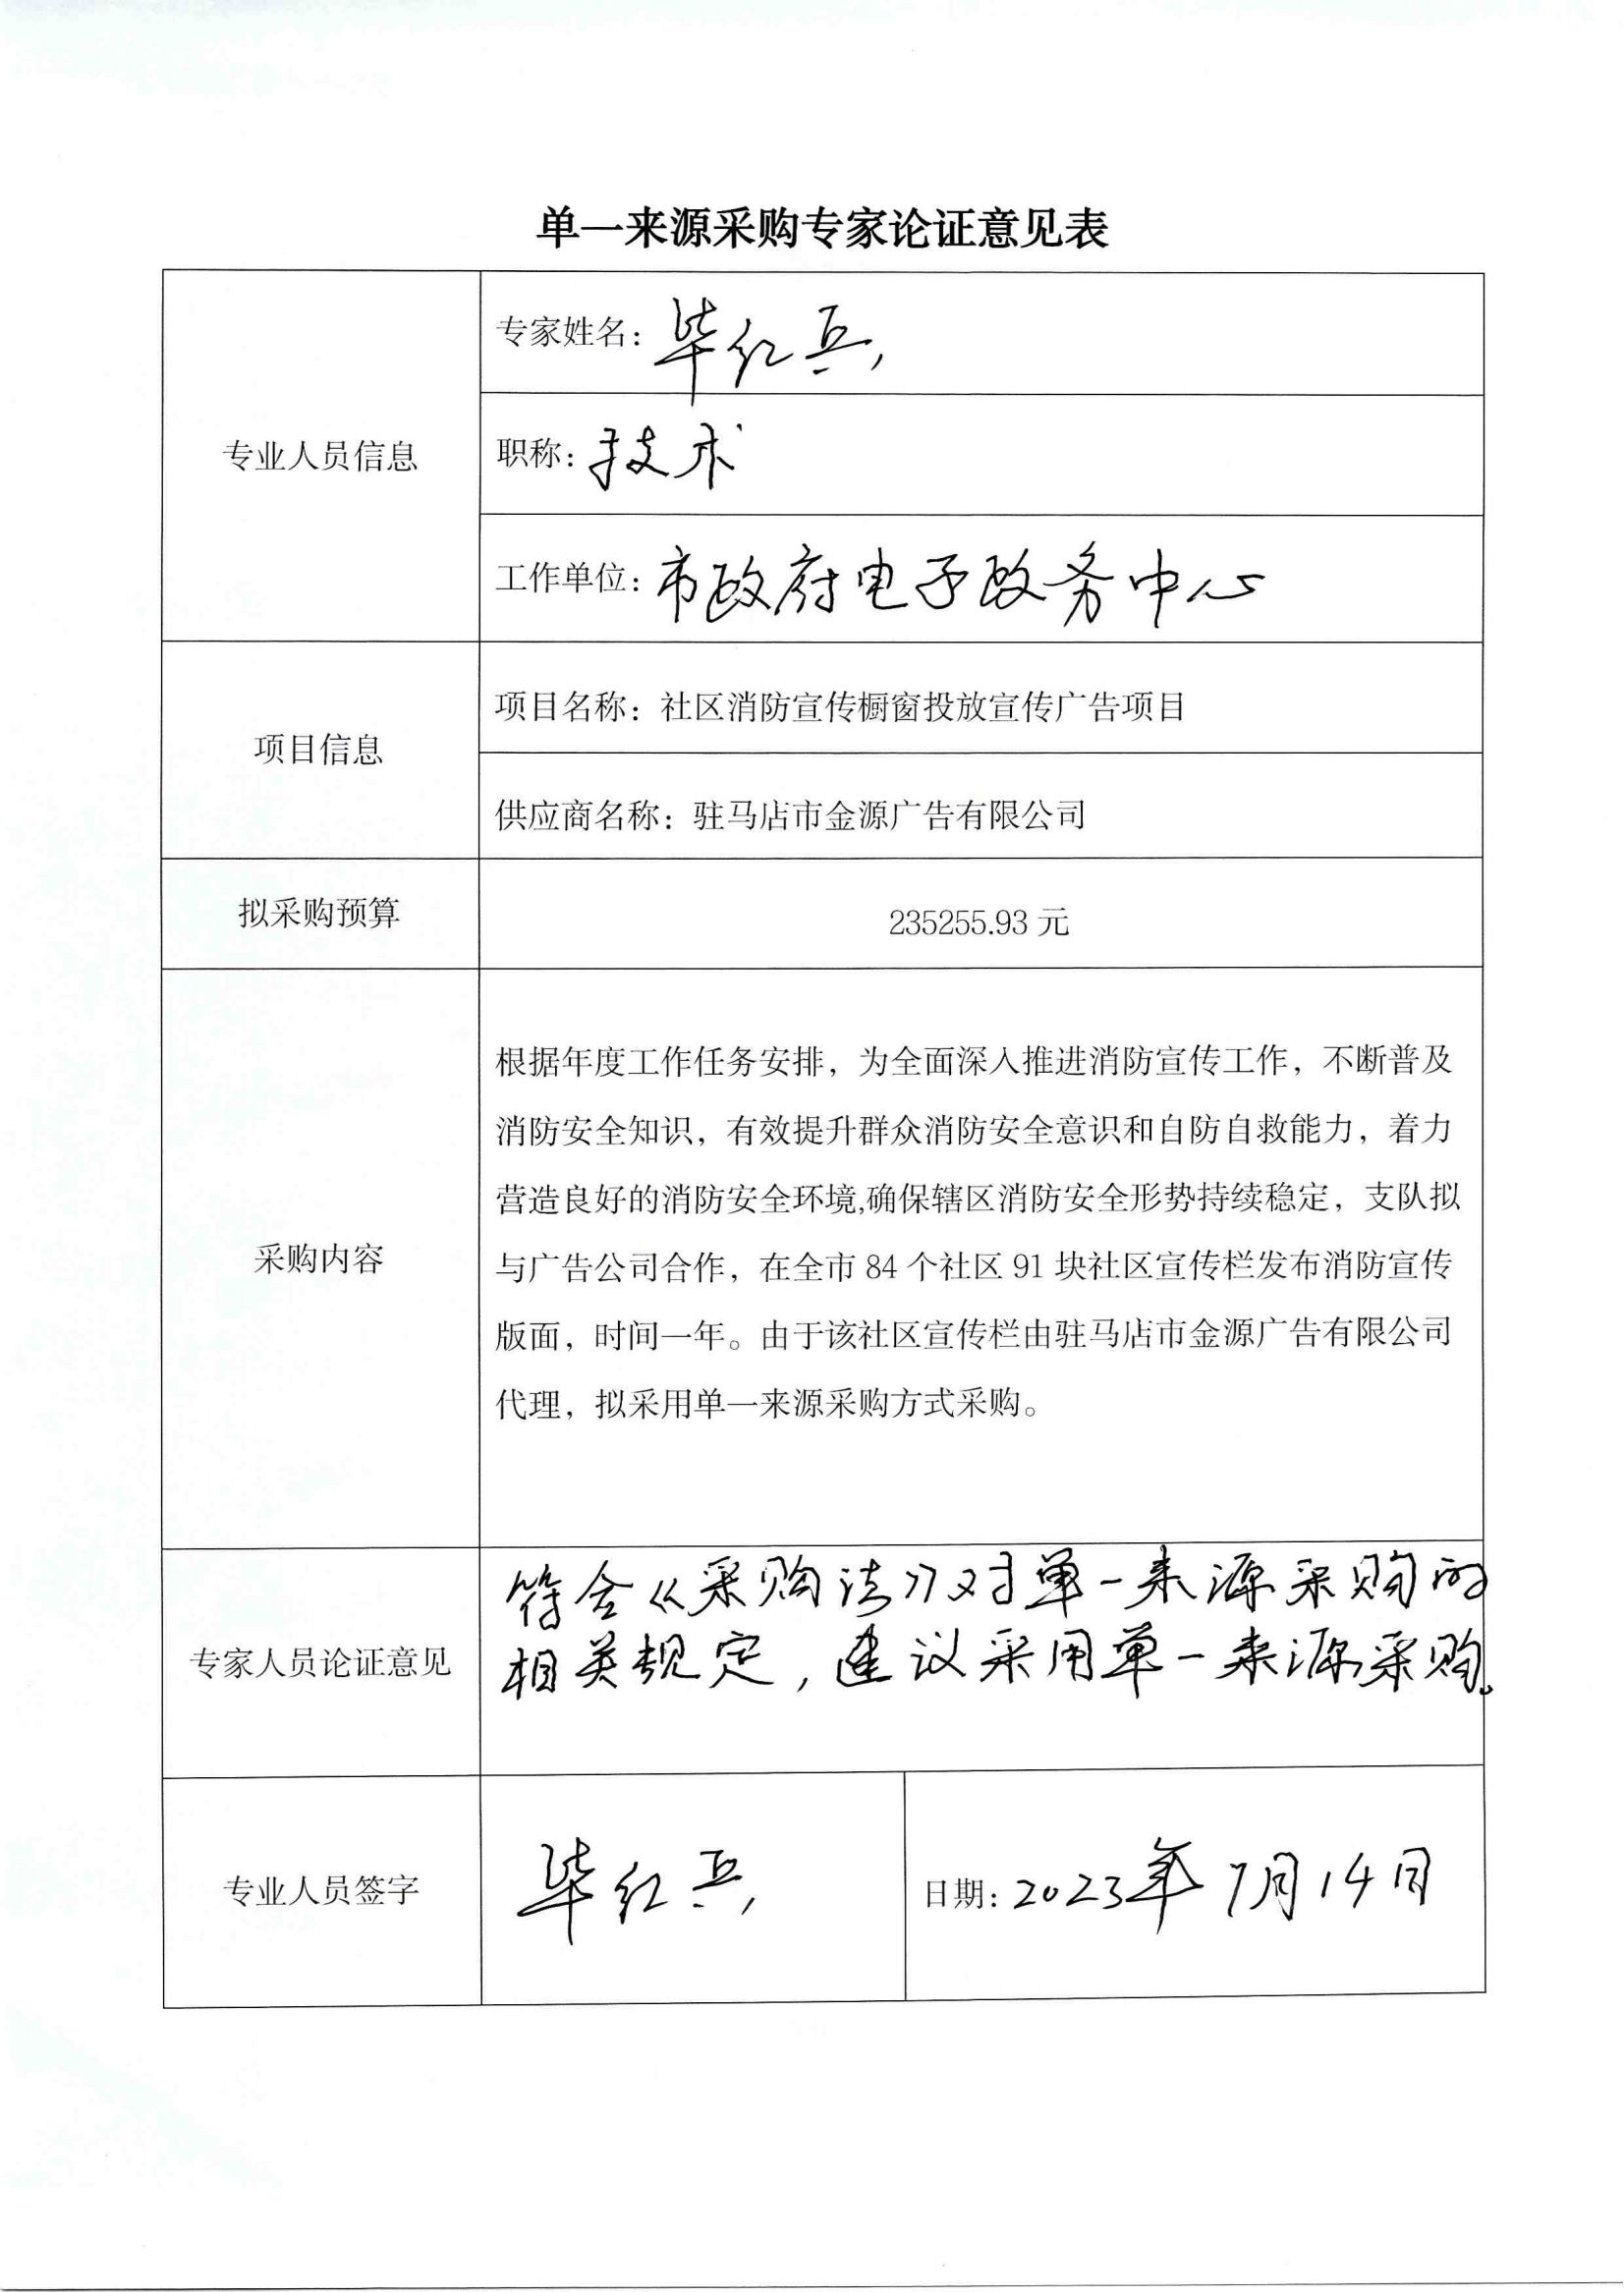 单一来源采购专家论证意见表
专业人员信息
专家姓名：毕红兵
职称：技术
工作单位：市政府电子政务中心
项目信息
项目名称：社区消防宣传橱窗投放宣传广告项目
供应商名称：驻马店市金源广告有限公司
拟采购预算
235255.93 元
采购内容
根据年度工作任务安排，为全面深入推进消防宣传工作，不断普及
消防安全知识，有效提升群众消防安全意识和自防自救能力，着力
营造良好的消防安全环境,确保辖区消防安全形势持续稳定，支队拟
与广告公司合作，在全市 84 个社区 91 块社区宣传栏发布消防宣传
版面，时间一年。由于该社区宣传栏由驻马店市金源广告有限公司
代理，拟采用单一来源采购方式采购。
专家人员论证意见
符合《采购法》对单一来源采购的
相关规定，建议采用单一来源采购。
专业人员签字
毕红兵
日期：2023年7月14日